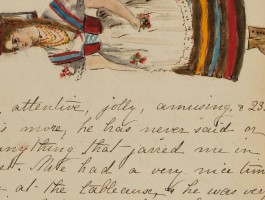 , attentive, jolly, amusing, & 23.
is more, he has never said or
anything that jarred me in
t. Mite had a very nice time
e at the tableaux, & he was very